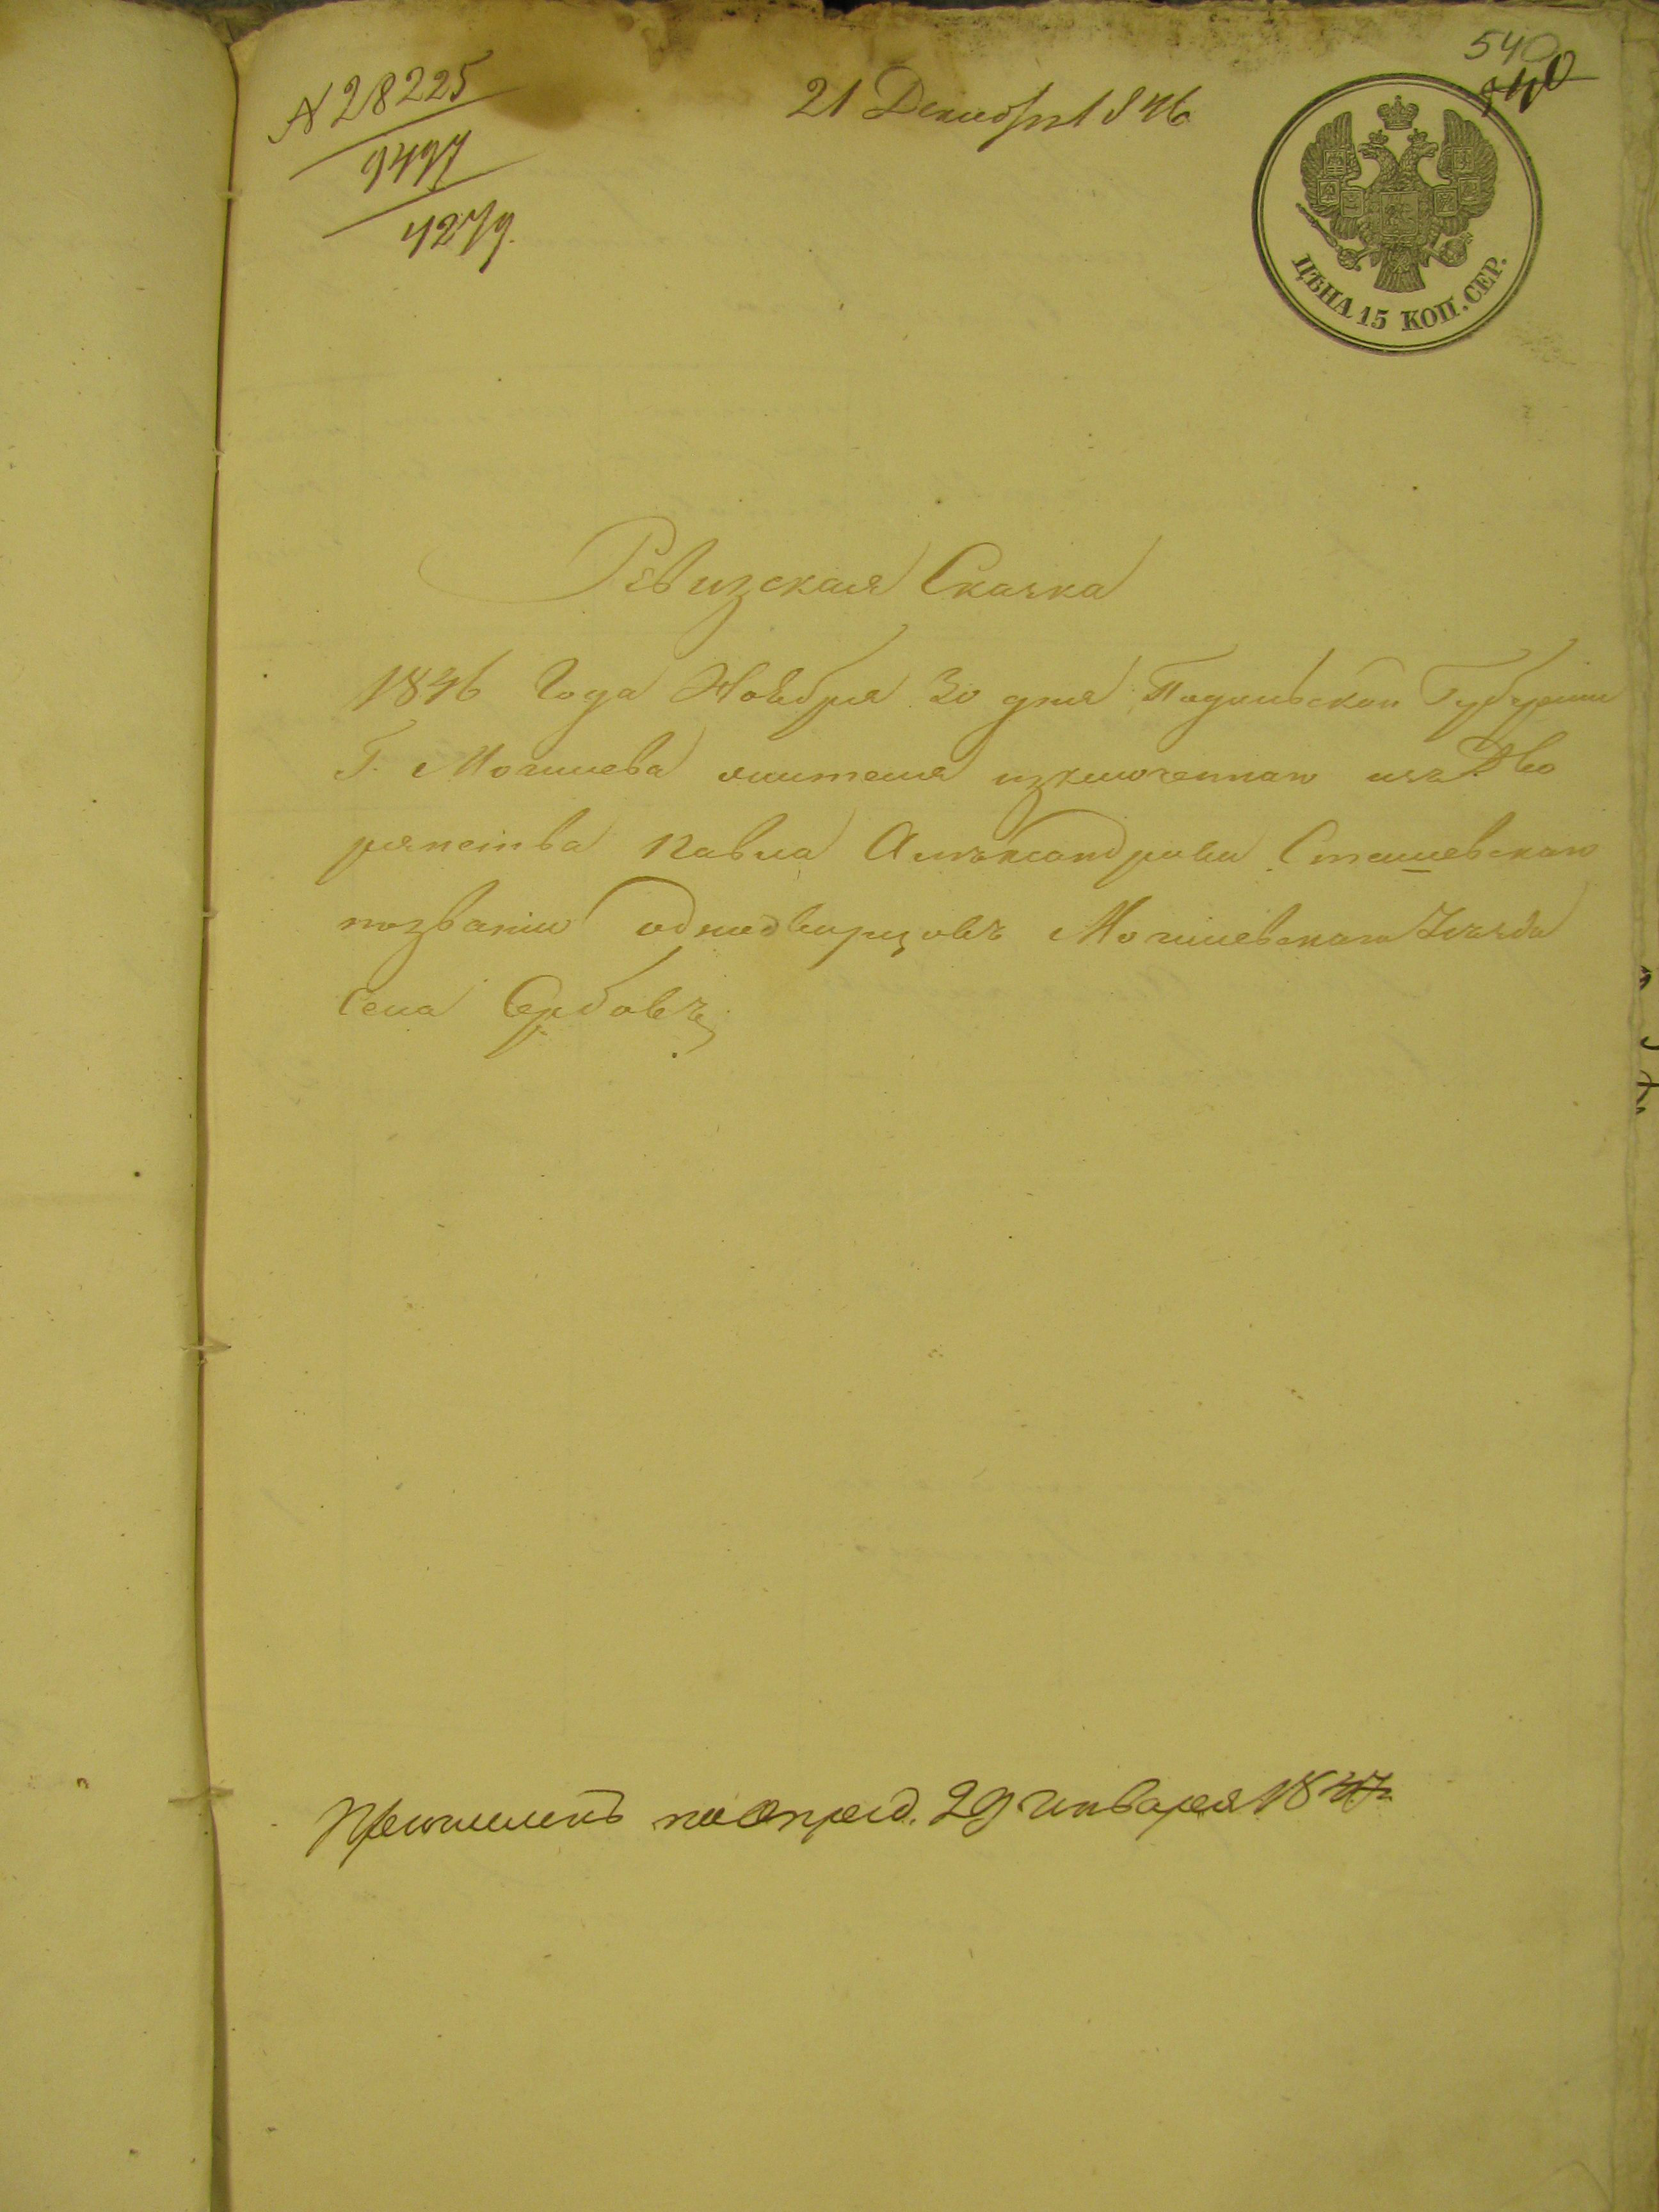 540
540
№ 28225
9497
4279.
21 Декабря 1846
ЦѢНА 15 КОП. СЕР.
Ревизская Сказка
1846 Года Ноября 30 дня Подольской Губернии
Г. Могилева жителя изключеннаго изъ Дво
рянства Павла Александрова Сташевскаго
по званию однодворцовъ Могилевскаго Уезда
Села Сербовъ
Причисленъ по опред. 29 января 1847